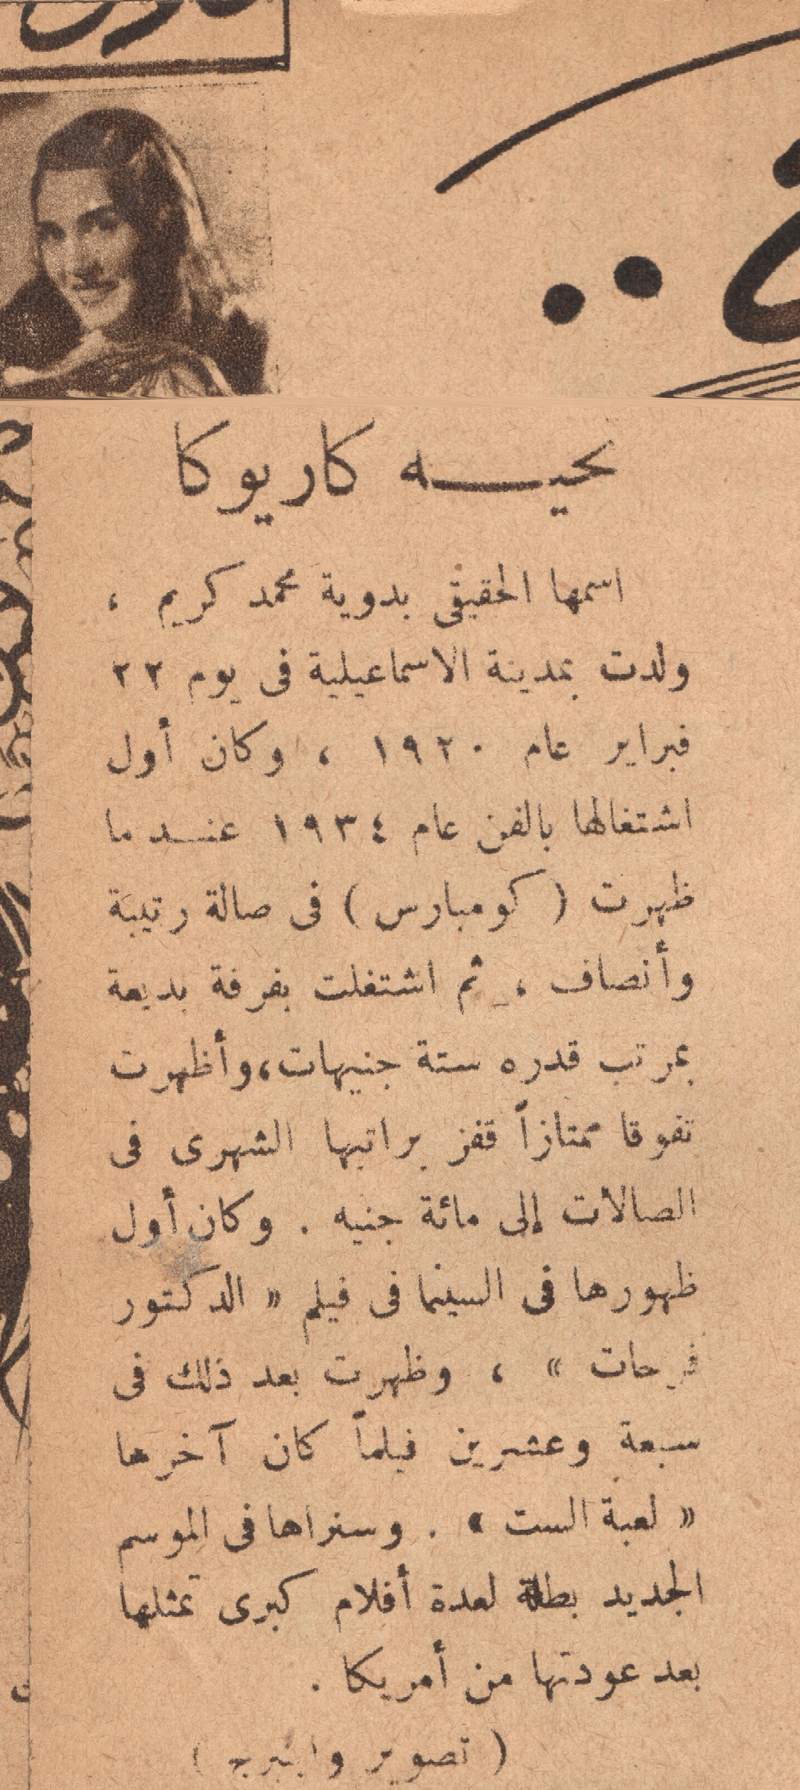 تحيـــه كاريوكا
اسمها الحقيقى بدوية محمد كريم ،
ولدت بمدينة الاسماعيلية فى يوم ٢٢
فبراير عام ١٩٢٠ ، وكان أول
اشتغالها بالفن عام ١٩٣٤ عنـــد ما
ظهرت ( كومبارس ) فى صالة رتيبة
وأنصاف ، ثم اشتغلت بفرقة بديعة
بمرتب قدره ستة جنيهات،وأظهرت
تفوقا ممتازاً قفز براتبها الشهرى فى
الصالات إلى مائة جنيه . وكان أول
ظهورها فى السينما فى فيلم « الدكتور
فرحات » ، وظهرت بعد ذلك فى
سبعة وعشرين فيلماً كان آخرها
« لعبة الست » . وسنراها فى الموسم
الجديد بطلة لعدة أفلام كبرى تمثلها
بعد عودتها من أمريكا .
( تصوير واينبرج )